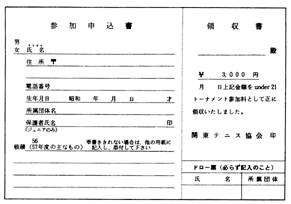 参加申込書
男
女 氏名
住所 〒
電話番号
生年月日 昭和 年 月 日 才
所属団体名
保護者氏名 印
(ジュニアのみ)
56
戦績 (57年度の主なもの) 枠書ききれない場合は、他の用紙に
記入し、添付して下さい
領収書
殿
¥ 3,000 円
月 日上記金額を under 21
トーナメント参加料として正に
領収いたしました。
関東テニス協会 印
ドロー票 (必らず記入のこと)
氏 名 所属団体